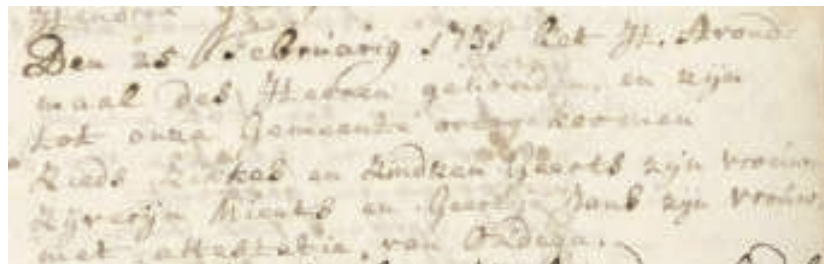 Den 25 Februarij 1731 het H. Avond-
maal des Heeren gehouden, en zijn
tot onze Gemeente overgekoomen
Rieds en Geerts zijn vrouw,
en Geertje Jans zijn vrouw,
met attestatie, van Oudega.